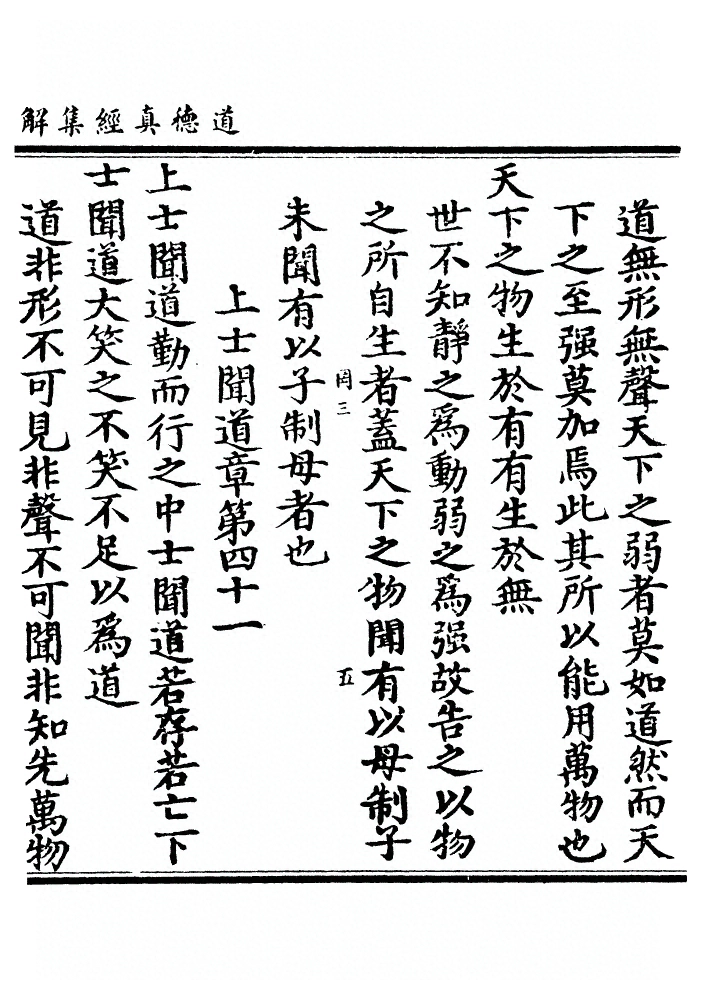 道德真經集解
道無形無聲天下之弱者莫如道然而天
下之至强莫加焉此其所以能用萬物也
天下之物生於有有生於無
世不知靜之爲動弱之爲强故告之以物
之所自生者蓋天下之物聞有以母制子
罔三
五
未聞有以子制母者也
上士聞道章第四十一
上士聞道勤而行之中士聞道若存若亡下
士聞道大笑之不笑不足以爲道
道非形不可見非聲不可聞非知先萬物